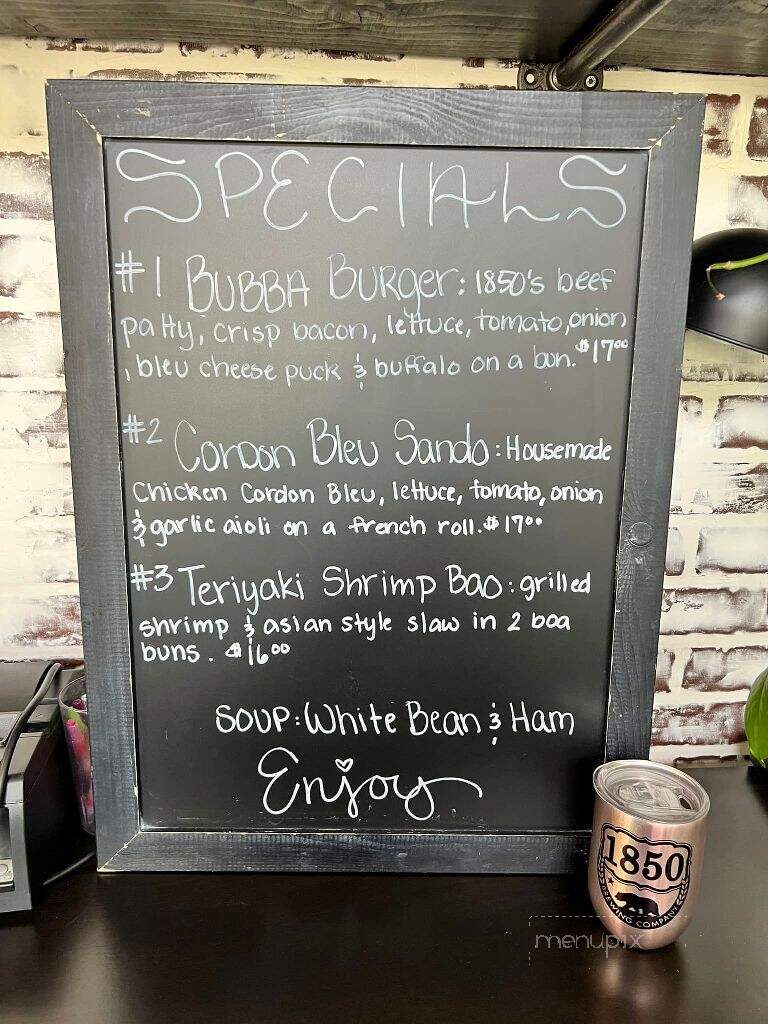 SPECIALS
#1 BUBBA BURGER: 1850's beef
patty, crisp bacon, lettuce, tomato, onion
, bleu cheese puck & buffalo on a bun. $17⁰⁰
#2 Cordon Bleu Sando: Housemade
Chicken Cordon Bleu, lettuce, tomato, onion
& garlic aioli on a french roll. $17⁰⁰
#3 Teriyaki Shrimp Bao: grilled
shrimp & asian style slaw in 2 boa
buns. $16⁰⁰
SOUP: White Bean & Ham
Enjoy
1850
BREWING COMPANY
menupix